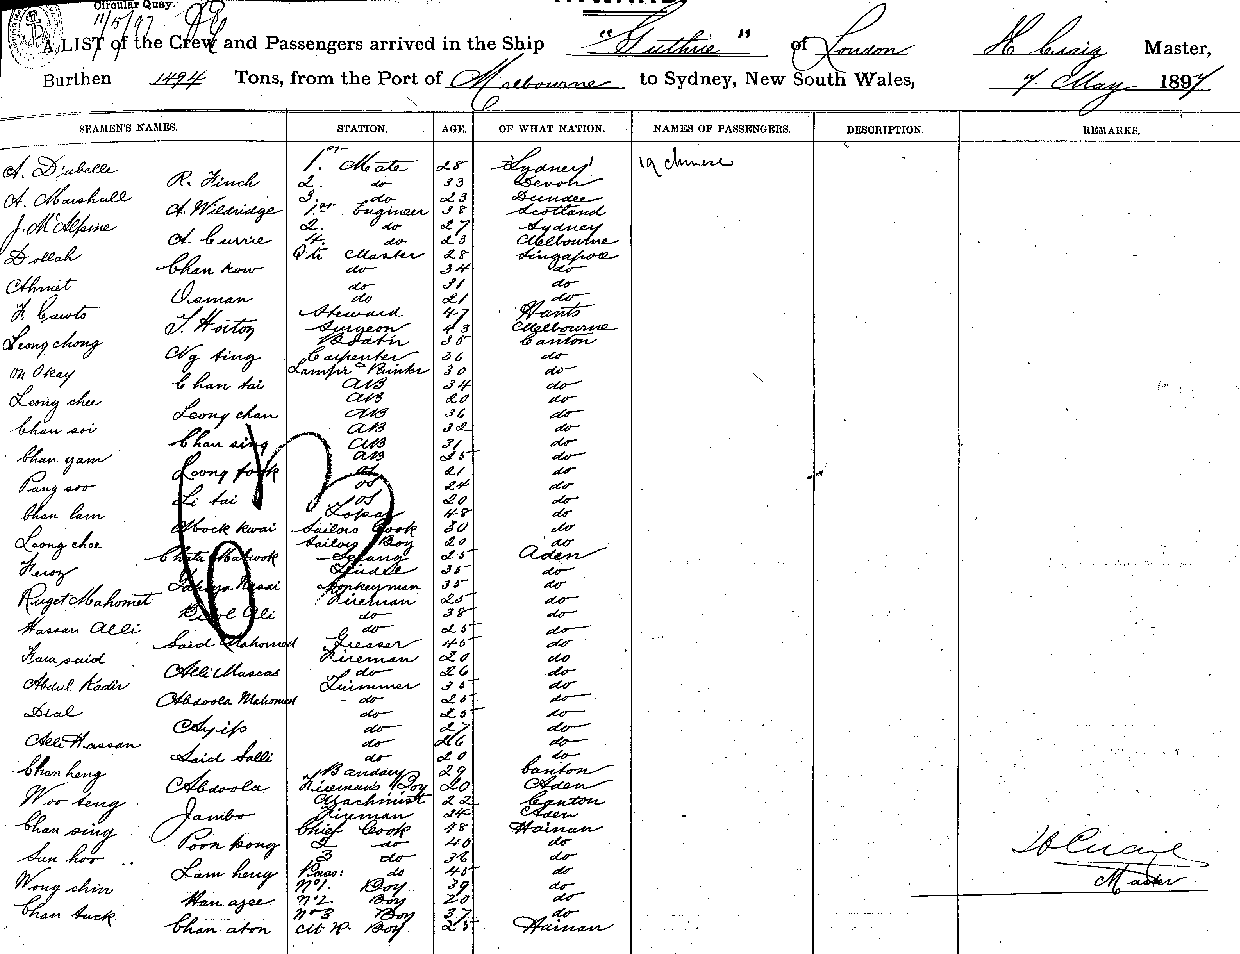 Circular Quay.
11/5/97
A LIST of the Crew and Passengers arrived in the Ship "Guthrie" of London Master,
Burthen 1494 Tons, from the Port of Melbourne to Sydney, New South Wales, 7 May 1897
SEAMEN'S NAMES. STATION. AGE. OF WHAT NATION. NAMES OF PASSENGERS. DESCRIPTION. REMARKS.
A. 1st Mate 28 Sydney 19 chinese
R. Finch 2. do 33 Devon
A. Marshall 3. do 23 Dundee
A. Wildridge 1st Engineer 38 Scotland
J. McAlpine 2. do 27 Sydney
A. Currie 4. do 23 Melbourne
Dollah Qtr Master 28 Singapore
Chan kow do 34 do
Ahmet do 31 do
Osman do 21 do
F. Cawts Steward 47 Hants
T. Horton Surgeon 43 Melbourne
Leong chong Boatn 38 Canton
Ng sing Carpenter 36 do
On Okay Lamp Trimkr 30 do
Chan tai AB 34 do
Leong chee AB 20 do
Leong chan AB 36 do
Chan soi AB 32 do
Chan sing AB 31 do
Chan yam AB 25 do
Leong fook OS 21 do
Pang soo OS 24 do
Li tai OS 20 do
Chan lam 48 do
Ah ock kwai Sailors Cook 30 do
Leong choe Sailors Boy 20 do
Serang 25 Aden
Feroz Tindle 35 do
Donkeyman 35 do
Ruget Mahomet Fireman 25 do
Ali do 38 do
Hassan Alli do 25 do
Said Mahomed Greaser 45 do
Kara said Fireman 20 do
Alli Muscas do 26 do
Abdul Kadir Trimmer 35 do
Abdoola Mahomed do 25 do
Dial do 25 do
Ayip do 27 do
Alli Hassan do 26 do
Said Salli do 20 do
Chan heng Bandary 29 Canton
Abdoola Fireman's Boy 20 Aden
Woo seng Machinist 22 Canton
Jambo Fireman 24 Aden
Chan sing Chief Cook 48 Hainan
Poon kong 2 do 40 do
Sun hoo 3 do 36 do
Lam heng Pass: do 45 do
Wong chin No1. Boy 39 do
Han agee No2 Boy 20 do
Chan tuck No3 Boy 37 do
Chan aton Boy 25 Hainan
Master